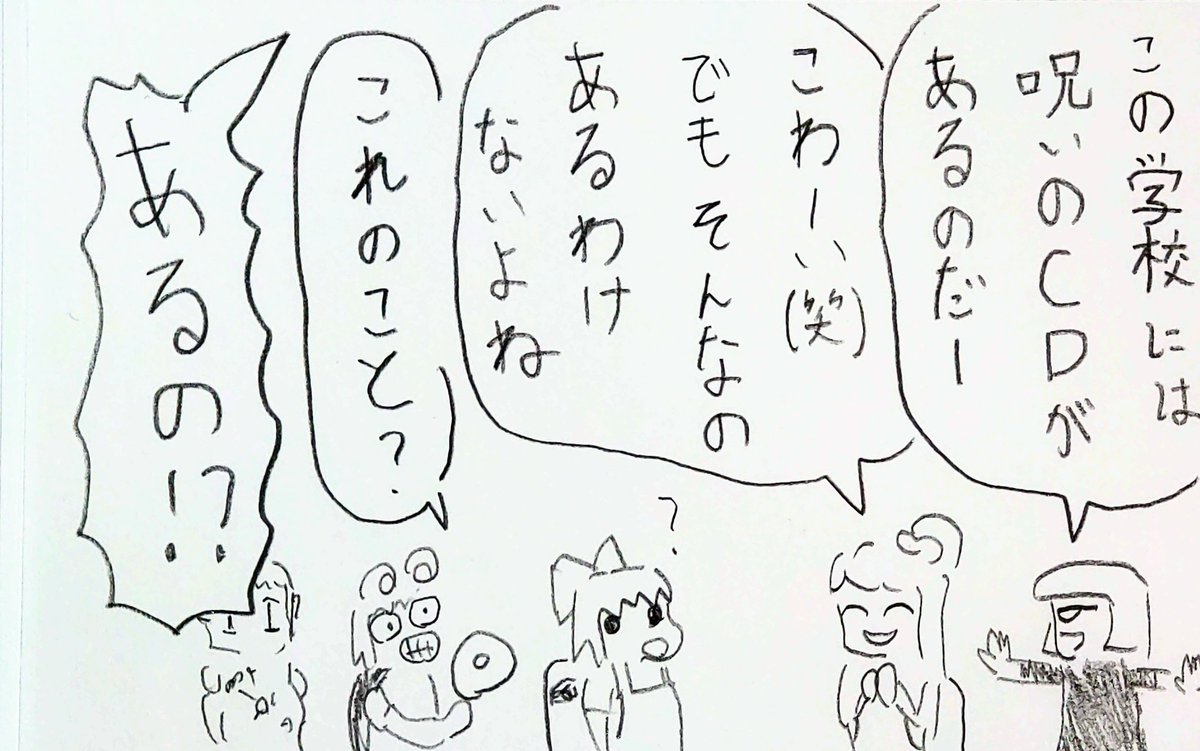 この学校には
呪いのCDが
あるのだー
こわーい(笑)
でもそんなの
あるわけ
ないよね
?
これのこと?
あるの!?